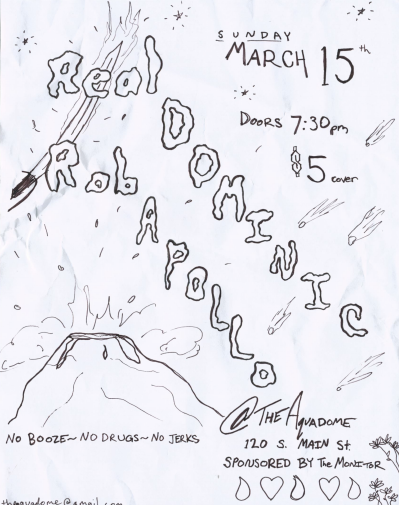 SUNDAY
MARCH 15th
Real DOMINIC
Rob APOLLO
DOORS 7:30pm
$5 cover
@ THE AQUADOME
120 S. MAIN St.
SPONSORED BY The MONITOR
NO BOOZE~NO DRUGS~NO JERKS
theaquadome@gmail.com